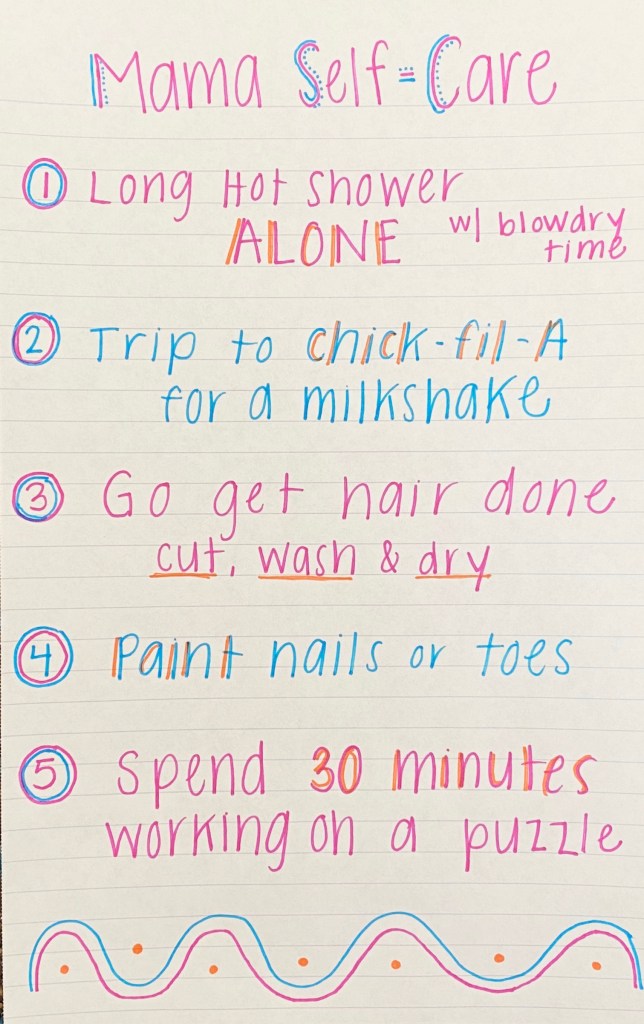 Mama Self-Care
1 Long Hot shower
ALONE w/ blowdry
time
2 Trip to chick-fil-A
for a milkshake
3 Go get hair done
cut, wash & dry
4 Paint nails or toes
5 Spend 30 minutes
working on a puzzle